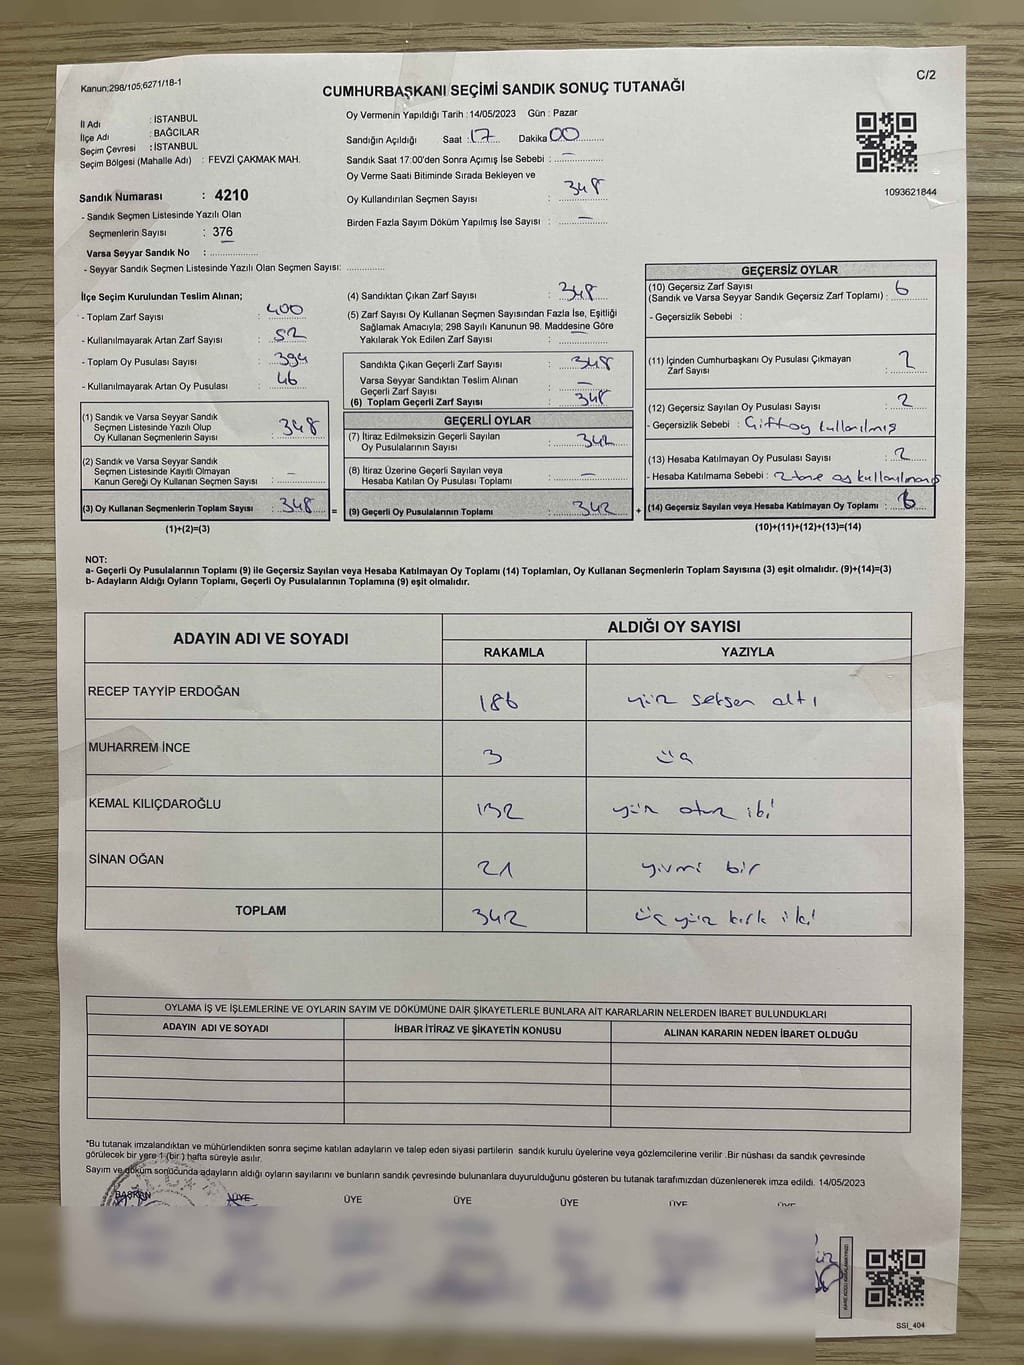 Kanun;298/105;6271/18-1
C/2
CUMHURBAŞKANI SEÇİMİ SANDIK SONUÇ TUTANAĞI
İl Adı : İSTANBUL
İlçe Adı : BAĞCILAR
Seçim Çevresi : İSTANBUL
Seçim Bölgesi (Mahalle Adı) : FEVZİ ÇAKMAK MAH.
Sandık Numarası : 4210
- Sandık Seçmen Listesinde Yazılı Olan
Seçmenlerin Sayısı : 376
Varsa Seyyar Sandık No :
- Seyyar Sandık Seçmen Listesinde Yazılı Olan Seçmen Sayısı:
Oy Vermenin Yapıldığı Tarih : 14/05/2023 Gün : Pazar
Sandığın Açıldığı Saat : 17 Dakika 00
Sandık Saat 17:00'den Sonra Açımış İse Sebebi : —
Oy Verme Saati Bitiminde Sırada Bekleyen ve
Oy Kullandırılan Seçmen Sayısı : 348
Birden Fazla Sayım Döküm Yapılmış İse Sayısı : —
1093621844
İlçe Seçim Kurulundan Teslim Alınan;
- Toplam Zarf Sayısı : 400
- Kullanılmayarak Artan Zarf Sayısı : 52
- Toplam Oy Pusulası Sayısı : 394
- Kullanılmayarak Artan Oy Pusulası : 46
(1) Sandık ve Varsa Seyyar Sandık
Seçmen Listesinde Yazılı Olup
Oy Kullanan Seçmenlerin Sayısı : 348
(2) Sandık ve Varsa Seyyar Sandık
Seçmen Listesinde Kayıtlı Olmayan
Kanun Gereği Oy Kullanan Seçmen Sayısı : —
(3) Oy Kullanan Seçmenlerin Toplam Sayısı : 348
(1)+(2)=(3)
(4) Sandıktan Çıkan Zarf Sayısı : 348
(5) Zarf Sayısı Oy Kullanan Seçmen Sayısından Fazla İse, Eşitliği
Sağlamak Amacıyla; 298 Sayılı Kanunun 98. Maddesine Göre
Yakılarak Yok Edilen Zarf Sayısı : —
Sandıkta Çıkan Geçerli Zarf Sayısı : 348
Varsa Seyyar Sandıktan Teslim Alınan
Geçerli Zarf Sayısı : —
(6) Toplam Geçerli Zarf Sayısı : 348
GEÇERLİ OYLAR
(7) İtiraz Edilmeksizin Geçerli Sayılan
Oy Pusulalarının Sayısı : 342
(8) İtiraz Üzerine Geçerli Sayılan veya
Hesaba Katılan Oy Pusulası Toplamı : —
= (9) Geçerli Oy Pusulalarının Toplamı : 342
GEÇERSİZ OYLAR
(10) Geçersiz Zarf Sayısı
(Sandık ve Varsa Seyyar Sandık Geçersiz Zarf Toplamı) : 6
- Geçersizlik Sebebi :
(11) İçinden Cumhurbaşkanı Oy Pusulası Çıkmayan
Zarf Sayısı : 2
(12) Geçersiz Sayılan Oy Pusulası Sayısı : 2
- Geçersizlik Sebebi : Çift oy kullanılmış
(13) Hesaba Katılmayan Oy Pusulası Sayısı : 2
- Hesaba Katılmama Sebebi : 2 tane oy kullanılmamış
+ (14) Geçersiz Sayılan veya Hesaba Katılmayan Oy Toplamı : 6
(10)+(11)+(12)+(13)=(14)
NOT:
a- Geçerli Oy Pusulalarının Toplamı (9) ile Geçersiz Sayılan veya Hesaba Katılmayan Oy Toplamı (14) Toplamları, Oy Kullanan Seçmenlerin Toplam Sayısına (3) eşit olmalıdır. (9)+(14)=(3)
b- Adayların Aldığı Oyların Toplamı, Geçerli Oy Pusulalarının Toplamına (9) eşit olmalıdır.
ADAYIN ADI VE SOYADI
ALDIĞI OY SAYISI
RAKAMLA YAZIYLA
RECEP TAYYİP ERDOĞAN 186 yüz seksen altı
MUHARREM İNCE 3 üç
KEMAL KILIÇDAROĞLU 132 yüz otuz iki
SİNAN OĞAN 21 yirmi bir
TOPLAM 342 üç yüz kırk iki
OYLAMA İŞ VE İŞLEMLERİNE VE OYLARIN SAYIM VE DÖKÜMÜNE DAİR ŞİKAYETLERLE BUNLARA AİT KARARLARIN NELERDEN İBARET BULUNDUKLARI
ADAYIN ADI VE SOYADI İHBAR İTİRAZ VE ŞİKAYETİN KONUSU ALINAN KARARIN NEDEN İBARET OLDUĞU
*Bu tutanak imzalandıktan ve mühürlendikten sonra seçime katılan adayların ve talep eden siyasi partilerin sandık kurulu üyelerine veya gözlemcilerine verilir .Bir nüshası da sandık çevresinde
görülecek bir yere 1 (bir ) hafta süreyle asılır.
Sayım ve döküm sonucunda adayların aldığı oyların sayılarını ve bunların sandık çevresinde bulunanlara duyurulduğunu gösteren bu tutanak tarafımızdan düzenlenerek imza edildi. 14/05/2023
BAŞKAN ÜYE ÜYE ÜYE ÜYE ÜYE ÜYE
SSI_404